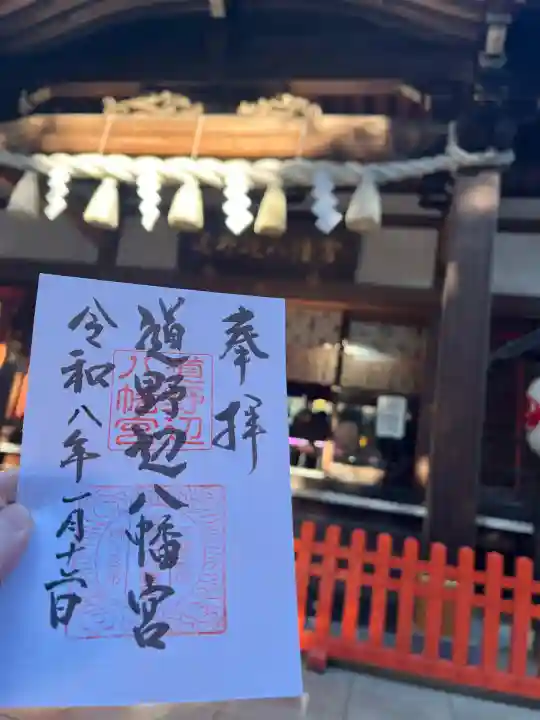 奉拝
道野辺八幡宮
道野辺
八幡宮
令和八年一月十二日